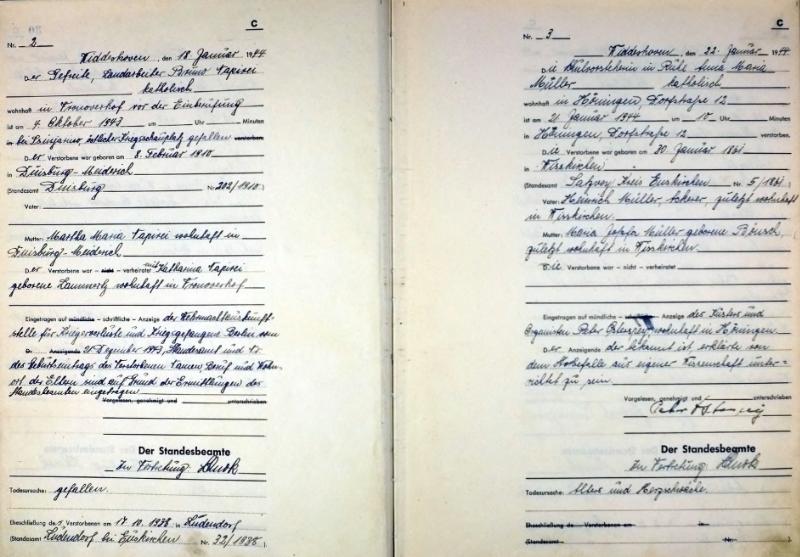 C
Nr. 2
Widdershoven, den 18. Januar 1944
Der Gefreite, Landarbeiter Bruno Vapirei
katholisch
wohnhaft in Kronoverhof vor der Einberufung
ist am 4. Oktober 1943 um Uhr Minuten
in bei östlicher Kriegsschauplatz gefallen verstorben.
Der Verstorbene war geboren am 8. Februar 1910
in Duisburg-Meiderich
(Standesamt Duisburg Nr. 202/1910)
Vater:
Mutter: Martha Maria Vapirei wohnhaft in
Duisburg-Meiderich
Der Verstorbene war – nicht – verheiratet mit Katharina Vapirei
geborene Lammertz wohnhaft in Kronoverhof
Eingetragen auf mündliche – schriftliche – Anzeige der Wehrmachtauskunft-
stelle für Kriegerverluste und Kriegsgefangene Berlin vom
D. Anzeigende 21. Dezember 1943, Standesamt und Nr.
des Geburtseintrags des Verstorbenen Namen, Beruf und Wohn-
ort der Eltern sind auf Grund der Ermittlungen des
Standesbeamten eingetragen
Vorgelesen, genehmigt und unterschrieben
Der Standesbeamte
In Vertretung:
Todesursache: gefallen.
Eheschließung des Verstorbenen am 17.10.1938 in Lüdendorf
(Standesamt Lüdendorf bei Euskirchen Nr. 32/1938)
C
Nr. 3
Widdershoven, den 22. Januar 1944
Die Schulvorsteherin in Ruhe Anna Maria
Müller katholisch
wohnhaft in Höningen, Dorfstraße 12
ist am 21. Januar 1944 um 10 Uhr Minuten
in Höningen, Dorfstraße 12 verstorben.
Die Verstorbene war geboren am 30. Januar 1861
in Wisskirchen
(Standesamt Satzvey Kreis Euskirchen Nr. 5/1861)
Vater: Heinrich Müller, Ackerer, zuletzt wohnhaft
in Wisskirchen.
Mutter: Maria Josefa Müller geborene
zuletzt wohnhaft in Wisskirchen.
Die Verstorbene war – nicht – verheiratet
Eingetragen auf mündliche – schriftliche – Anzeige des Küsters und
Organisten Peter wohnhaft in Höningen.
Der Anzeigende der bekannt ist erklärte von
dem Sterbefalle aus eigener Wissenschaft unter-
richtet zu sein.
Vorgelesen, genehmigt und unterschrieben
Peter
Der Standesbeamte
In Vertretung:
Todesursache: Alters und Herzschwäche.
Eheschließung de Verstorbenen am in
(Standesamt Nr. )